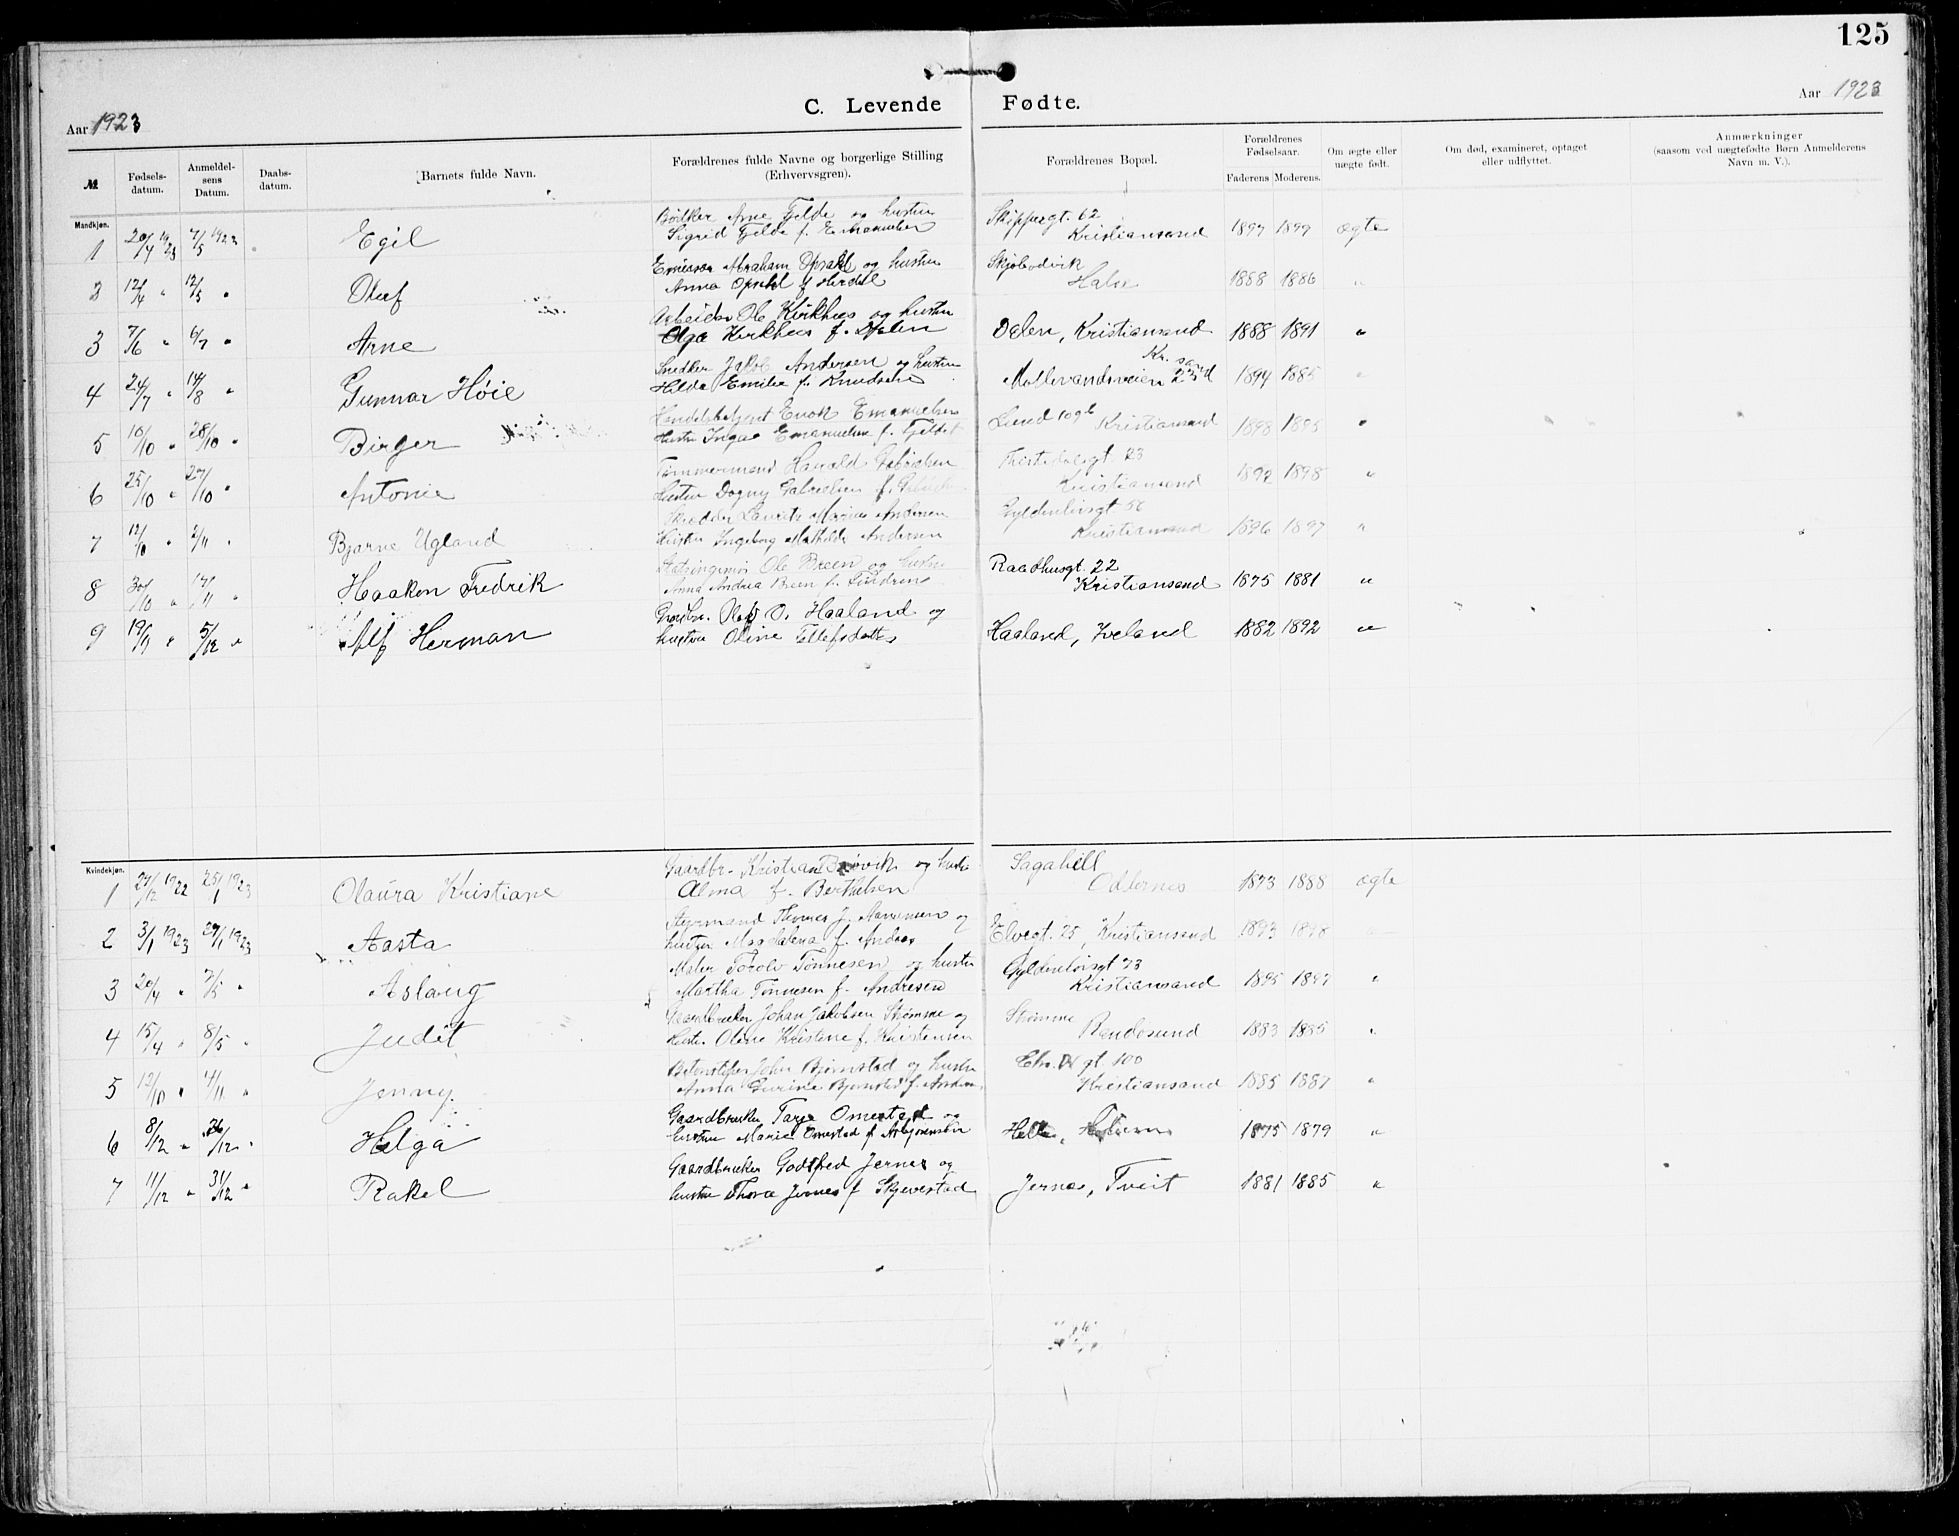 125
C. Levende Fødte.
Aar 1923
Aar 1923
№
Fødsels-
datum.
Anmeldel-
sens
Datum.
Daabs-
datum.
Barnets fulde Navn.
Forældrenes fulde Navne og borgerlige Stilling
(Erhvervsgren).
Forældrenes Bopæl.
Forældrenes
Fødselsaar.
Faderens Moderens.
Om ægte eller
uægte født.
Om død, examineret, optaget
eller udflyttet.
Anmærkninger
(saasom ved uægtefødte Børn Anmelderens
Navn m. V.).
Mandkjøn.
Bødker Arne Fjelde og hustru Skippergt. 62
1 20/4 1923 7/5 1923 Egil Sigrid Fjelde f. Emanuelsen Kristiansand 1897 1899 ægte
Abraham Opsahl og hustru
2 12/4 " 12/5 " Oluf Anna Opsahl f. Herdal 1888 1886 "
Arbeider Ole Kirkhus og hustru
3 7/6 " 6/7 " Arne Olga Kirkhus f. Dalen Dalen, Kristiansand 1888 1891 "
Snedker Jakob Andersen og hustru Kr. sand
4 24/7 " 14/8 " Gunnar Høie Hilda Emilie f. Knudsen 1894 1885 "
Enok Emanuelsen Lund
5 10/10 " 28/10 " Birger Hustru Inga Emanuelsen f. Kristiansand 1898 1895 "
Tømmermand Harald Gabrielsen 23
6 25/10 " 27/10 " Antonie Hustru Dagny Gabrielsen f. Kristiansand 1892 1898 "
Skrædder Lauritz Marius Andersen Gyldenløvsgt 56
7 12/10 " 2/11 " Bjarne Ugland Hustru Ingeborg Mathilde Andersen Kristiansand 1896 1897 "
Ole Breen og hustru Raadhusgt. 22
8 30/10 " 17/11 " Haakon Fredrik Anna Andrea Breen f. Kristiansand 1875 1881 "
Gardbr. Olaf O. Haaland og
9 19/9 " 5/12 " Alf Herman hustru Oline Tellefsdatter Haaland, Iveland 1882 1892 "
Kvindekjøn.
Gaardbr. Kristian og hustru
1 27/12 1922 25/1 1923 Olaura Kristiane Alma f. Berthelsen Oddernes 1873 1888 ægte
Styrmand Thomas J. og
2 3/1 1923 27/1 1923 Aasta hustru Magdalena f. Elvegt. 25, Kristiansand 1893 1898 "
Maler Torolv Tønnesen og hustru Gyldenløvsgt 73
3 20/4 " 7/5 " Aslaug Martha Tønnesen f. Andresen Kristiansand 1895 1897 "
Gaardbruker Johan Jakobsen Strømme og Strømme
4 15/4 " 8/5 " Judit Hustru Oline Kristine f. Kristensen Randesund 1883 1885 "
John Bjørnstad og hustru gt 100
5 12/10 " 4/11 " Jenny Anna Gurine Bjørnstad f. Kristiansand 1885 1887 "
Gaardbruker Tarje Omestad og
6 8/12 " 26/12 " Helga hustru Marie Omestad f. 1875 1879 "
Gaardbruker Godtfred Jernes og
7 11/12 " 31/12 " Rakel hustru Thora Jernes f. Skjevestad Jernes, Tveit 1881 1885 "